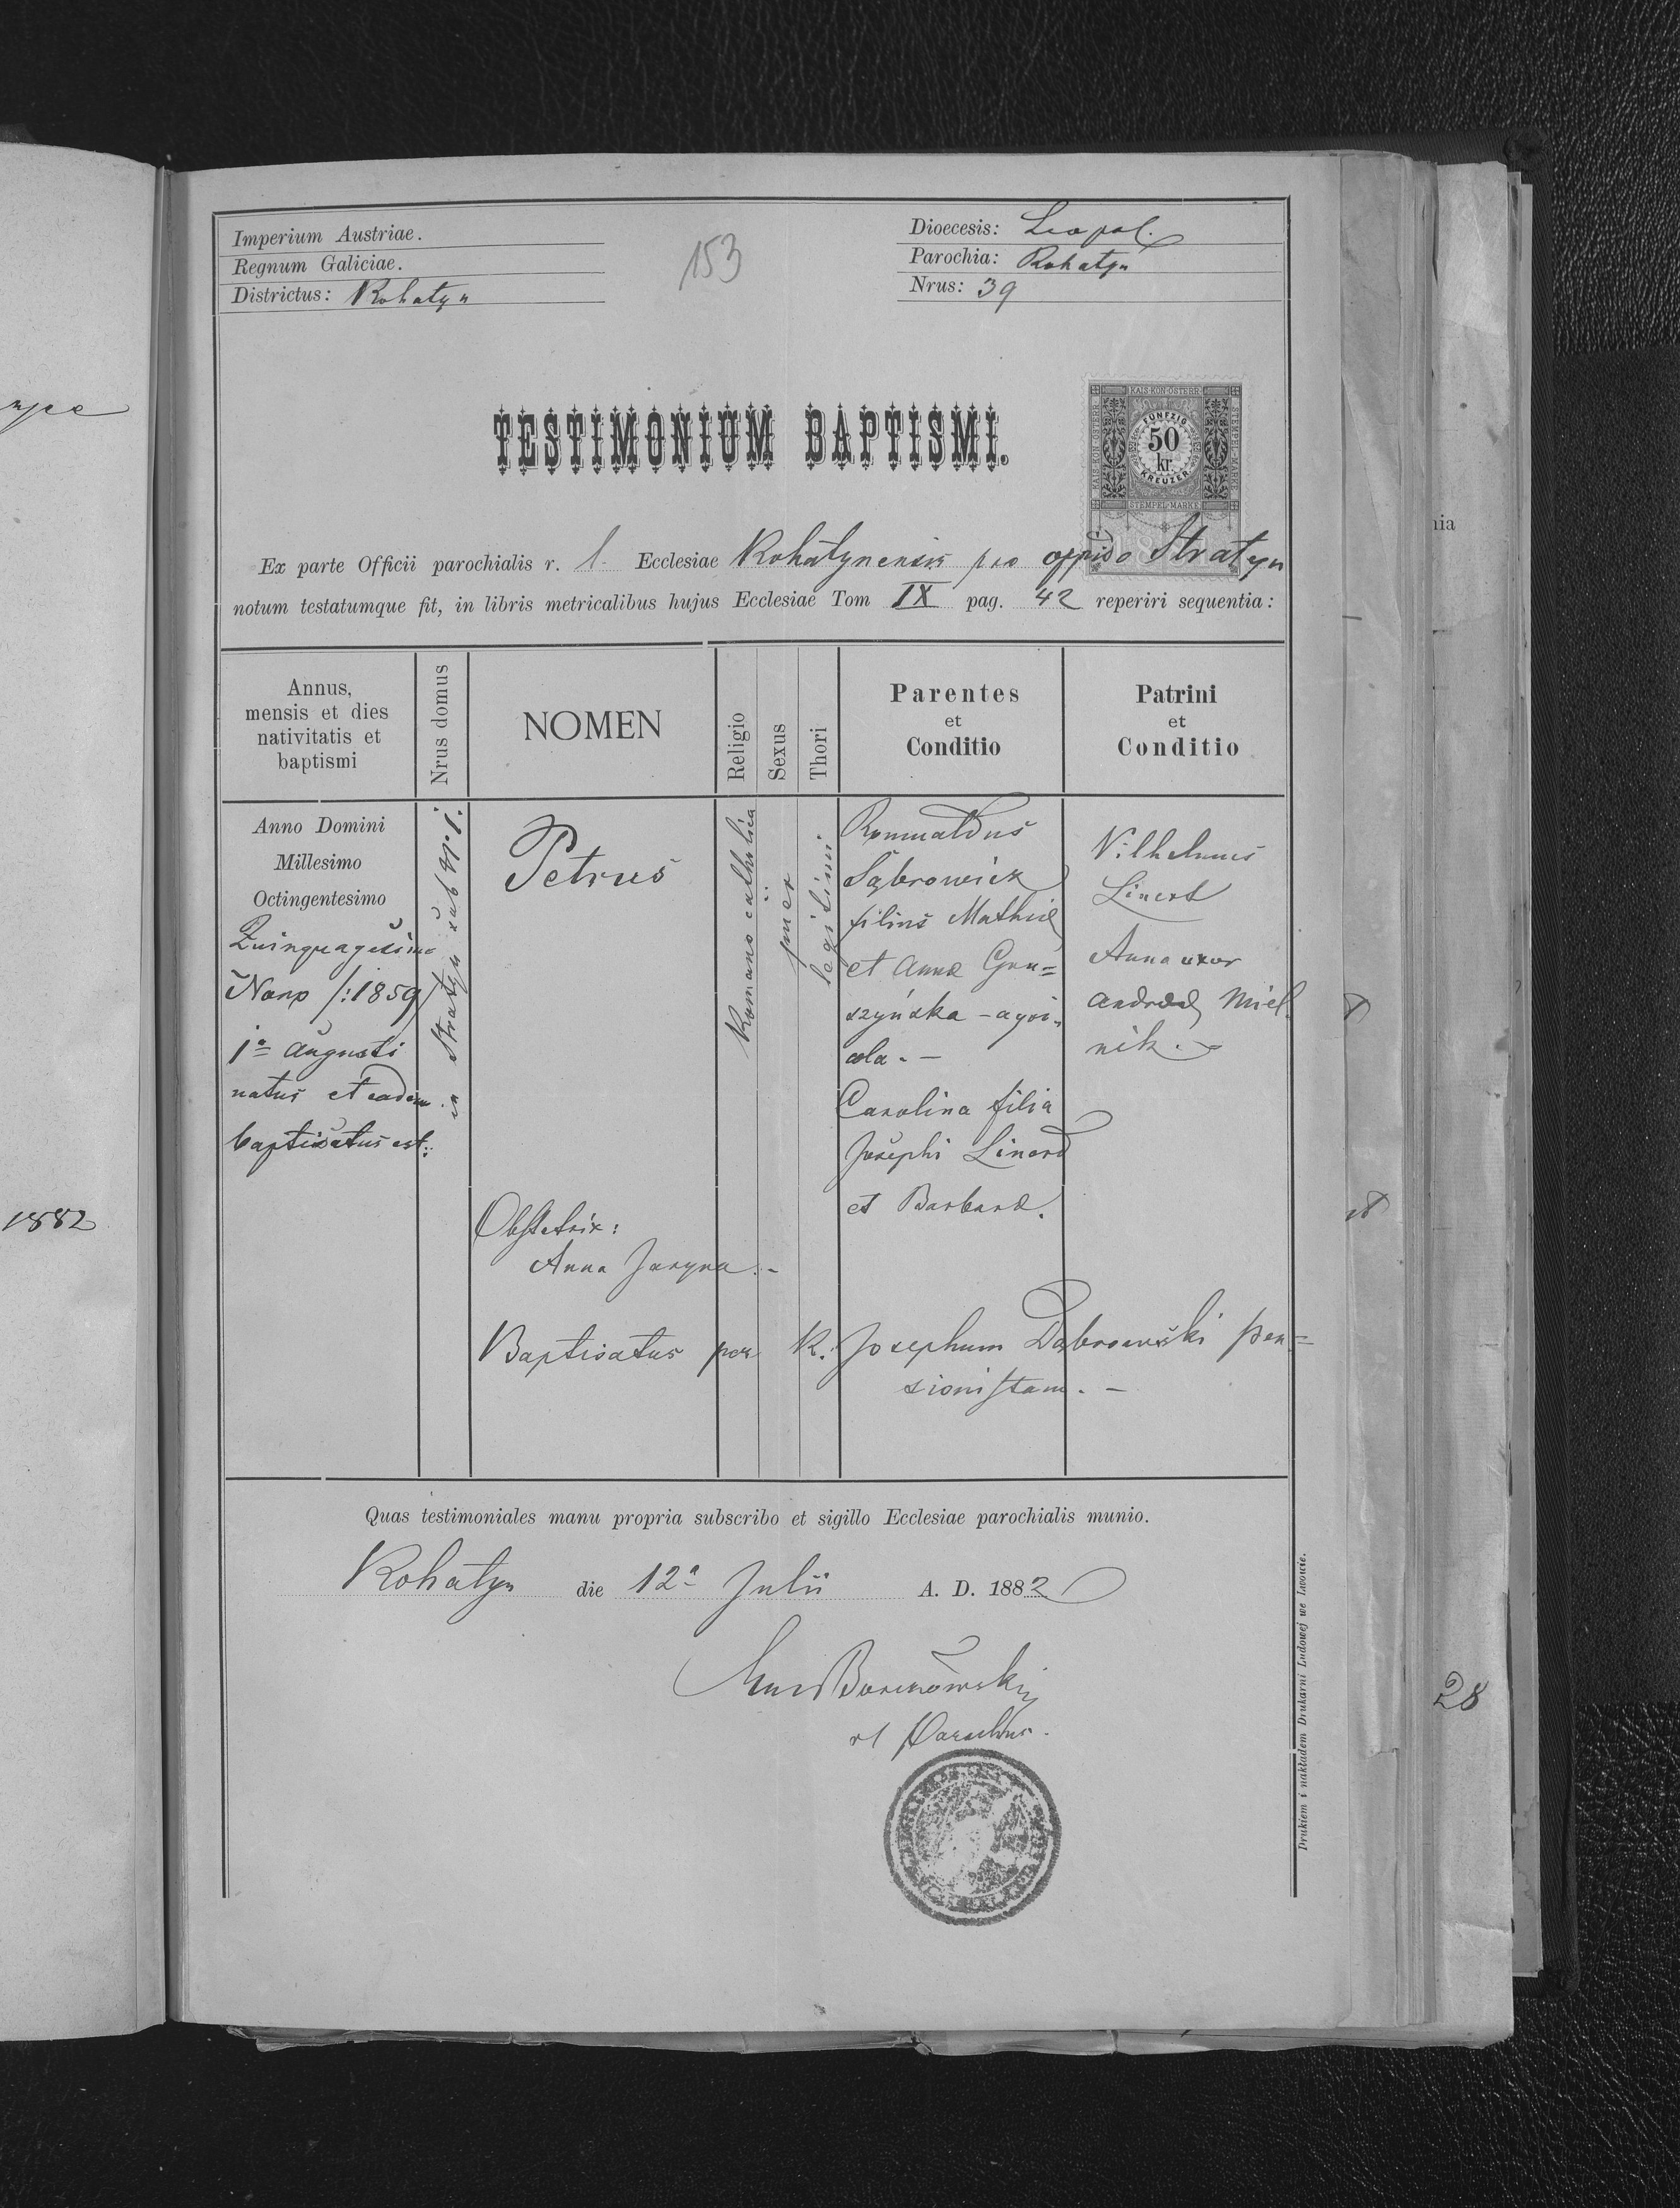 Imperium Austriae.
Regnum Galiciae.
Districtus: Rohatyn
153
Dioecesis: Leopol.
Parochia: Rohatyn
Nrus: 39
TESTIMONIUM BAPTISMI.
KAIS·KÖN·ÖSTERR
FÜNFZIG
50
kr
KREUZER
STEMPEL-MARKE
Ex parte Officii parochialis r. l. Ecclesiae Rohatynensis pro oppido Stratyn
notum testatumque fit, in libris metricalibus hujus Ecclesiae Tom IX pag. 42 reperiri sequentia:
Annus,
mensis et dies
nativitatis et
baptismi
Nrus domus
NOMEN
Religio
Sexus
Thori
Parentes
et
Conditio
Patrini
et
Conditio
Anno Domini
Millesimo
Octingentesimo
Quinquagesimo
Nono /:1859/
1ª Augusti
natus et eadem
baptisatus est:
in Stratyn sub Nr 1.
Petrus
Obstetrix:
Anna Jaryna.-
Romano catholica
puer
legitimi.
Romualdus
Sąbrowicz
filius Mathiae
et Annae Gru=
szyńska - agri=
cola. -
Carolina filia
Josephi Linerd
et Barbarae.
Vilhelmus
Linert
Anna uxor
Andreae Miel
nik. -
Baptisatus per R. Josephum Dąbrowski pen=
sionistam. -
Quas testimoniales manu propria subscribo et sigillo Ecclesiae parochialis munio.
Rohatyn die 12ª Julii A. D. 1882
rl Parochus.
Drukiem i nakładem Drukarni Ludowej we Lwowie.
1882
nia
28